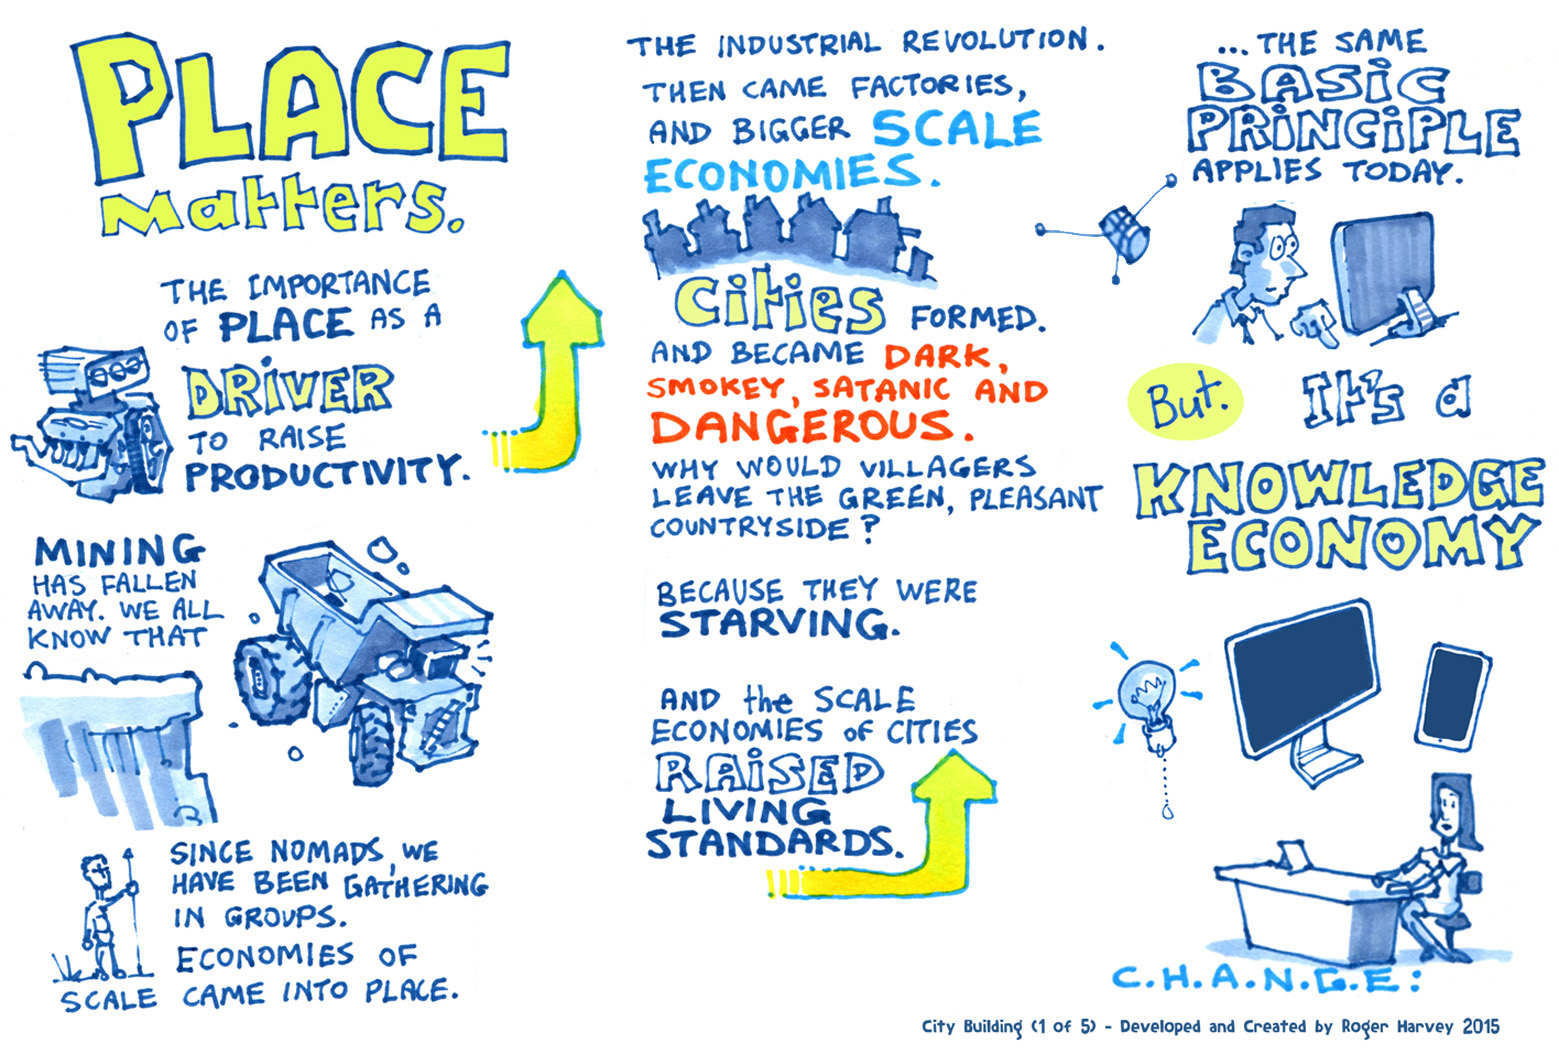 PLACE
Matters.
THE IMPORTANCE
OF PLACE AS A
DRIVER
TO RAISE
PRODUCTIVITY.
MINING
HAS FALLEN
AWAY. WE ALL
KNOW THAT
SINCE NOMADS, WE
HAVE BEEN GATHERING
IN GROUPS.
ECONOMIES OF
SCALE CAME INTO PLACE.
THE INDUSTRIAL REVOLUTION.
THEN CAME FACTORIES,
AND BIGGER SCALE
ECONOMIES.
Cities FORMED.
AND BECAME DARK,
SMOKEY, SATANIC AND
DANGEROUS.
WHY WOULD VILLAGERS
LEAVE THE GREEN, PLEASANT
COUNTRYSIDE?
BECAUSE THEY WERE
STARVING.
AND the SCALE
ECONOMIES of CITIES
RAISED
LIVING
STANDARDS.
...THE SAME
BASIC
PRINCIPLE
APPLIES TODAY.
But. It's a
KNOWLEDGE
ECONOMY
C.H.A.N.G.E:
City Building (1 of 5) - Developed and Created by Roger Harvey 2015